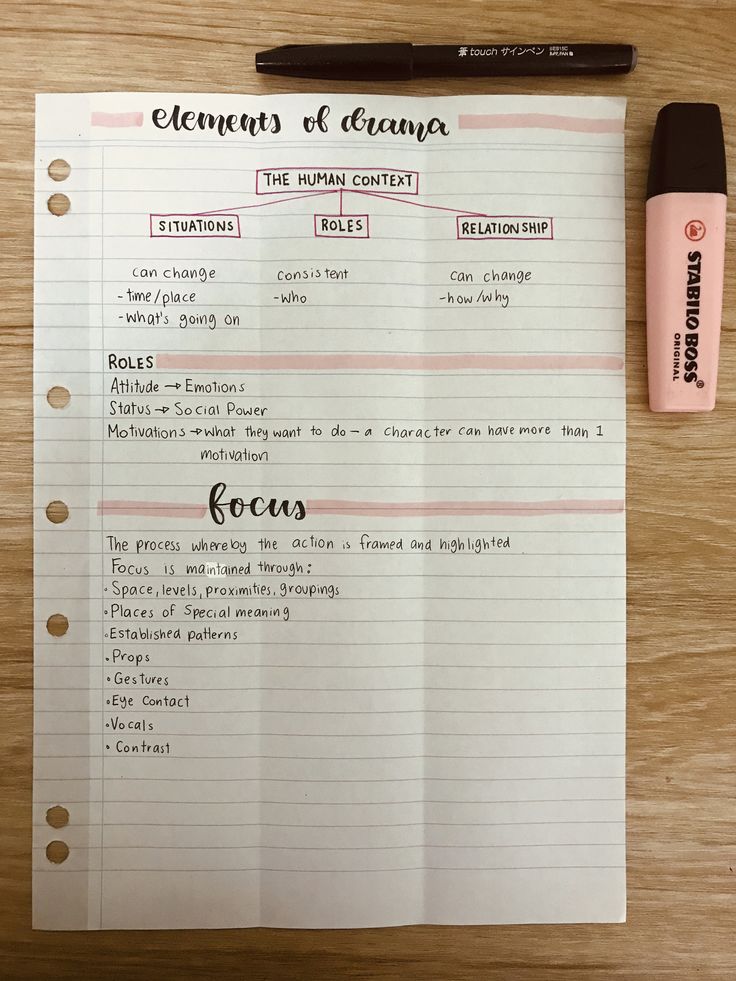 touch サインペン
elements of drama
THE HUMAN CONTEXT
SITUATIONS ROLES RELATIONSHIP
can change consistent can change
-time/place -who -how/why
-what's going on
ROLES
Attitude → Emotions
Status → Social Power
Motivations → what they want to do - a character can have more than 1
motivation
focus
The process whereby the action is framed and highlighted
Focus is maintained through:
• Space, levels, proximities, groupings
• Places of Special meaning
• Established patterns
• Props
• Gestures
• Eye Contact
• Vocals
• Contrast
STABILO BOSS®
ORIGINAL